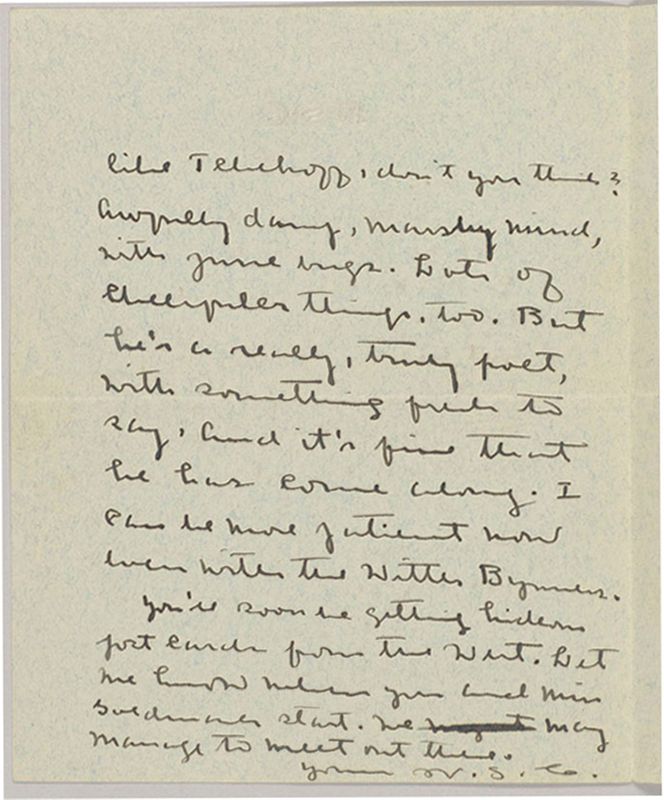 like Tchehoff, don't you think?
Awfully damp, marshy mind,
with june bugs. Lots of
cheerfuller things, too. But
he's a really, truly poet,
with something fresh to
say, and it's fine that
he has come along. I
can be more patient now
even with the Witter Bynners.
You'll soon be getting hideous
post cards from the West. Let
me know when you and Miss
Goldmark start. We may
manage to meet out there.
Yours W. S. C.